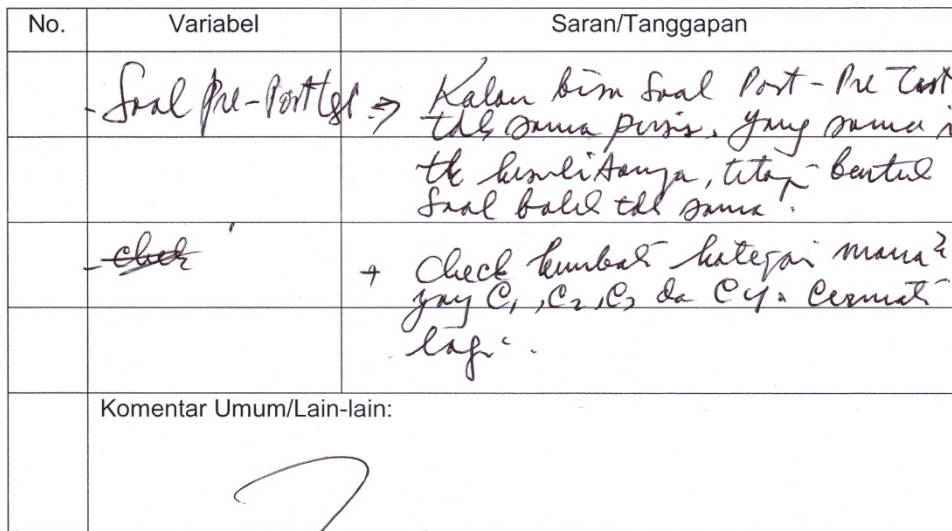 No. Variabel Saran/Tanggapan
- Soal Pre-Posttest => Kalau bisa Soal Post-Pre Test
tdk sama persis. yang sama
tk kesulitannya, tetapi bentuk
Soal boleh tdk sama.
- check + Check kembali kategori mana2
yang C1, C2, C3 da C4. Cermati
lagi.
Komentar Umum/Lain-lain: